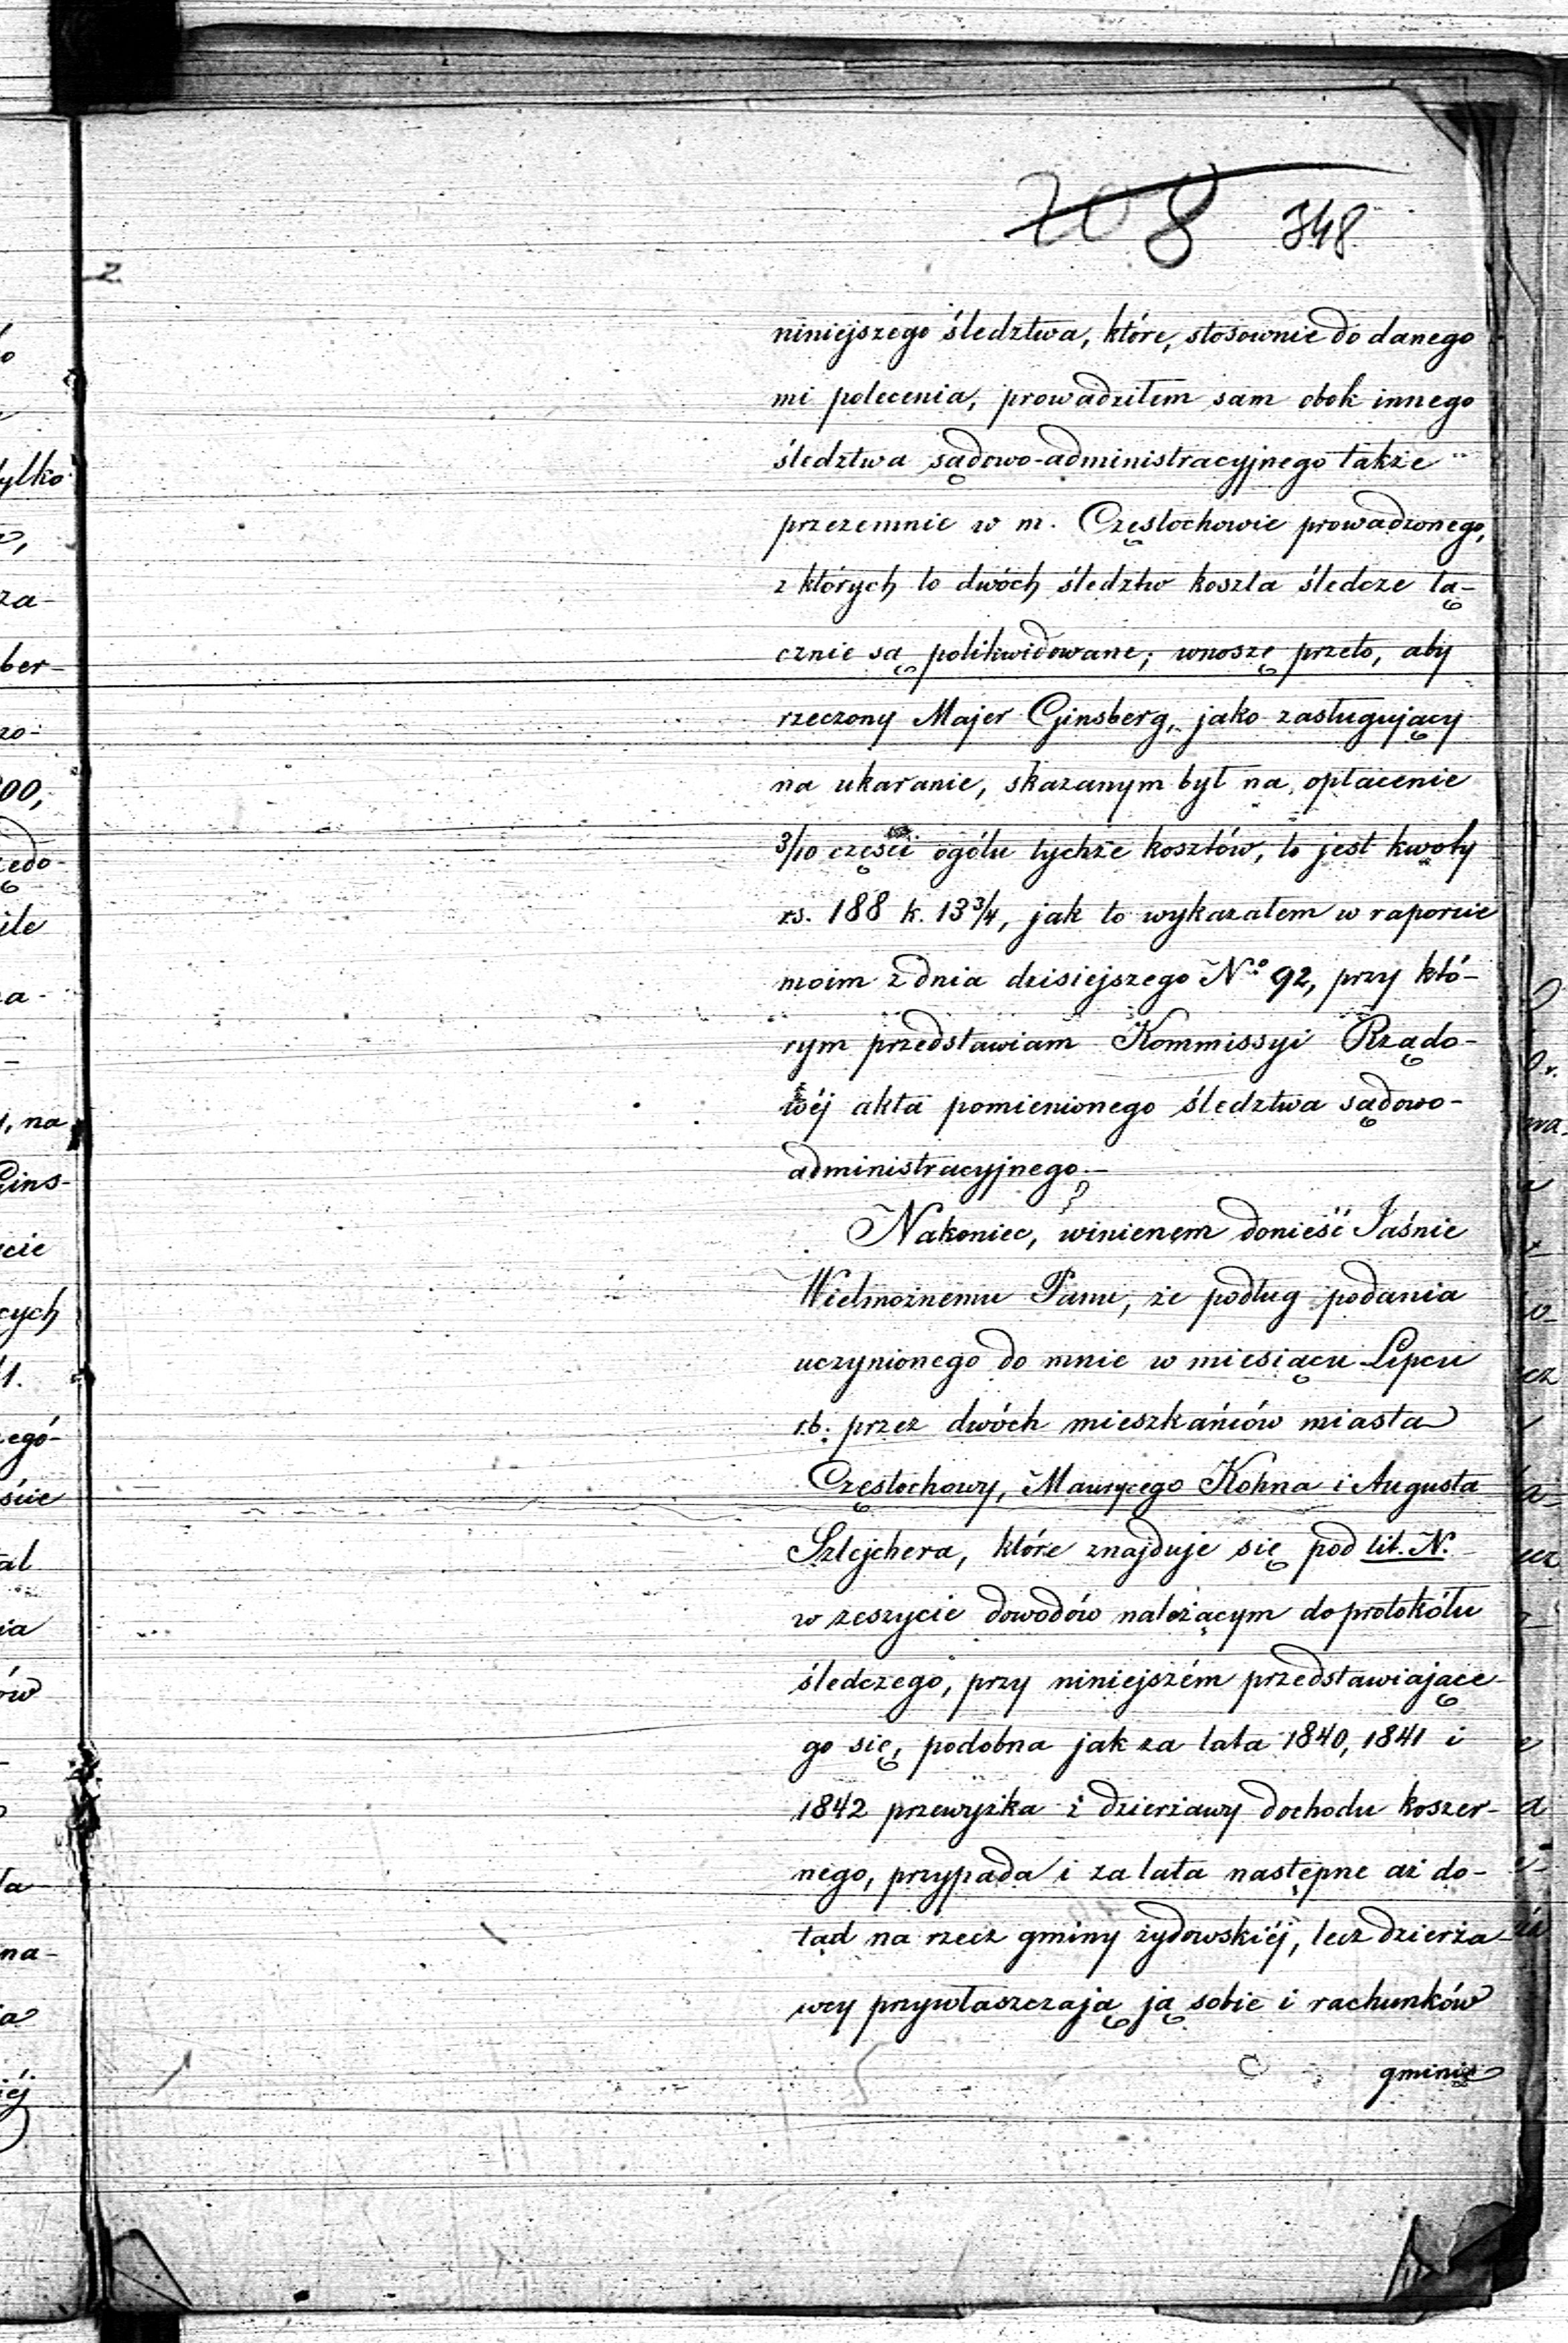 208 348
niniejszego śledztwa, które, stosownie do danego
mi polecenia, prowadziłem sam obok innego
śledztwa sądowo-administracyjnego także
przezemnie w m. Częstochowie prowadzonego,
z których to dwóch śledztw koszta śledcze łą-
cznie są polikwidowane; wnoszę przeto, aby
rzeczony Majer Ginsberg, jako zasługujący
na ukaranie, skazanym był na opłacenie
3/10 części ogółu tychże kosztów, to jest kwoty
rs. 188 k. 13 3/4, jak to wykazałem w raporcie
moim z dnia dzisiejszego No 92, przy któ-
rym przedstawiam Kommissyi Rządo-
wéj akta pomienionego śledztwa sądowo-
administracyjnego.—
Nakoniec, winienem donieść Jaśnie
Wielmożnemu Panu, że podług podania
uczynionego do mnie w miesiącu Lipcu
r.b. przez dwóch mieszkańców miasta
Częstochowy, Maurycego Kohna i Augusta
Szlejchera, które znajduje się pod lit. N.
w zeszycie dowodów należącym do protokółu
śledczego, przy niniejszém przedstawiające-
go się, podobna jak za lata 1840, 1841 i
1842 przewyżka z dzierżawy dochodu koszer-
nego, przypada i za lata następne aż do-
tąd na rzecz gminy żydowskiéj, lecz dzierża-
wcy przywłaszczają ją sobie i rachunków
gminie